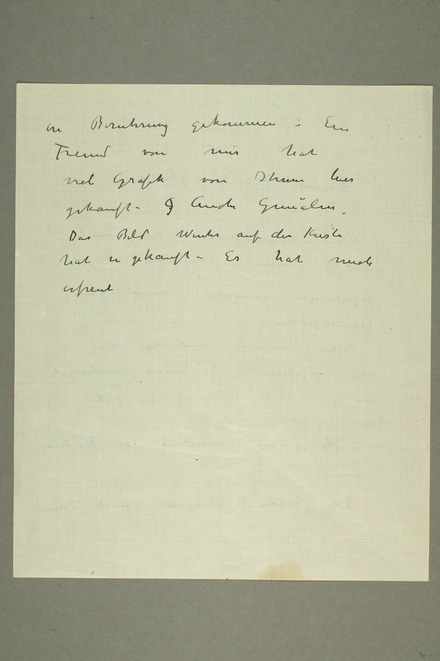 in Berührung gekommen – Ein
Freund von mir hat
viel Grafik von Ihnen hier
gekauft – Auch Gemälde.
Das Bild Winter auf der Küste
hat er gekauft – Es hat mich
erfreut